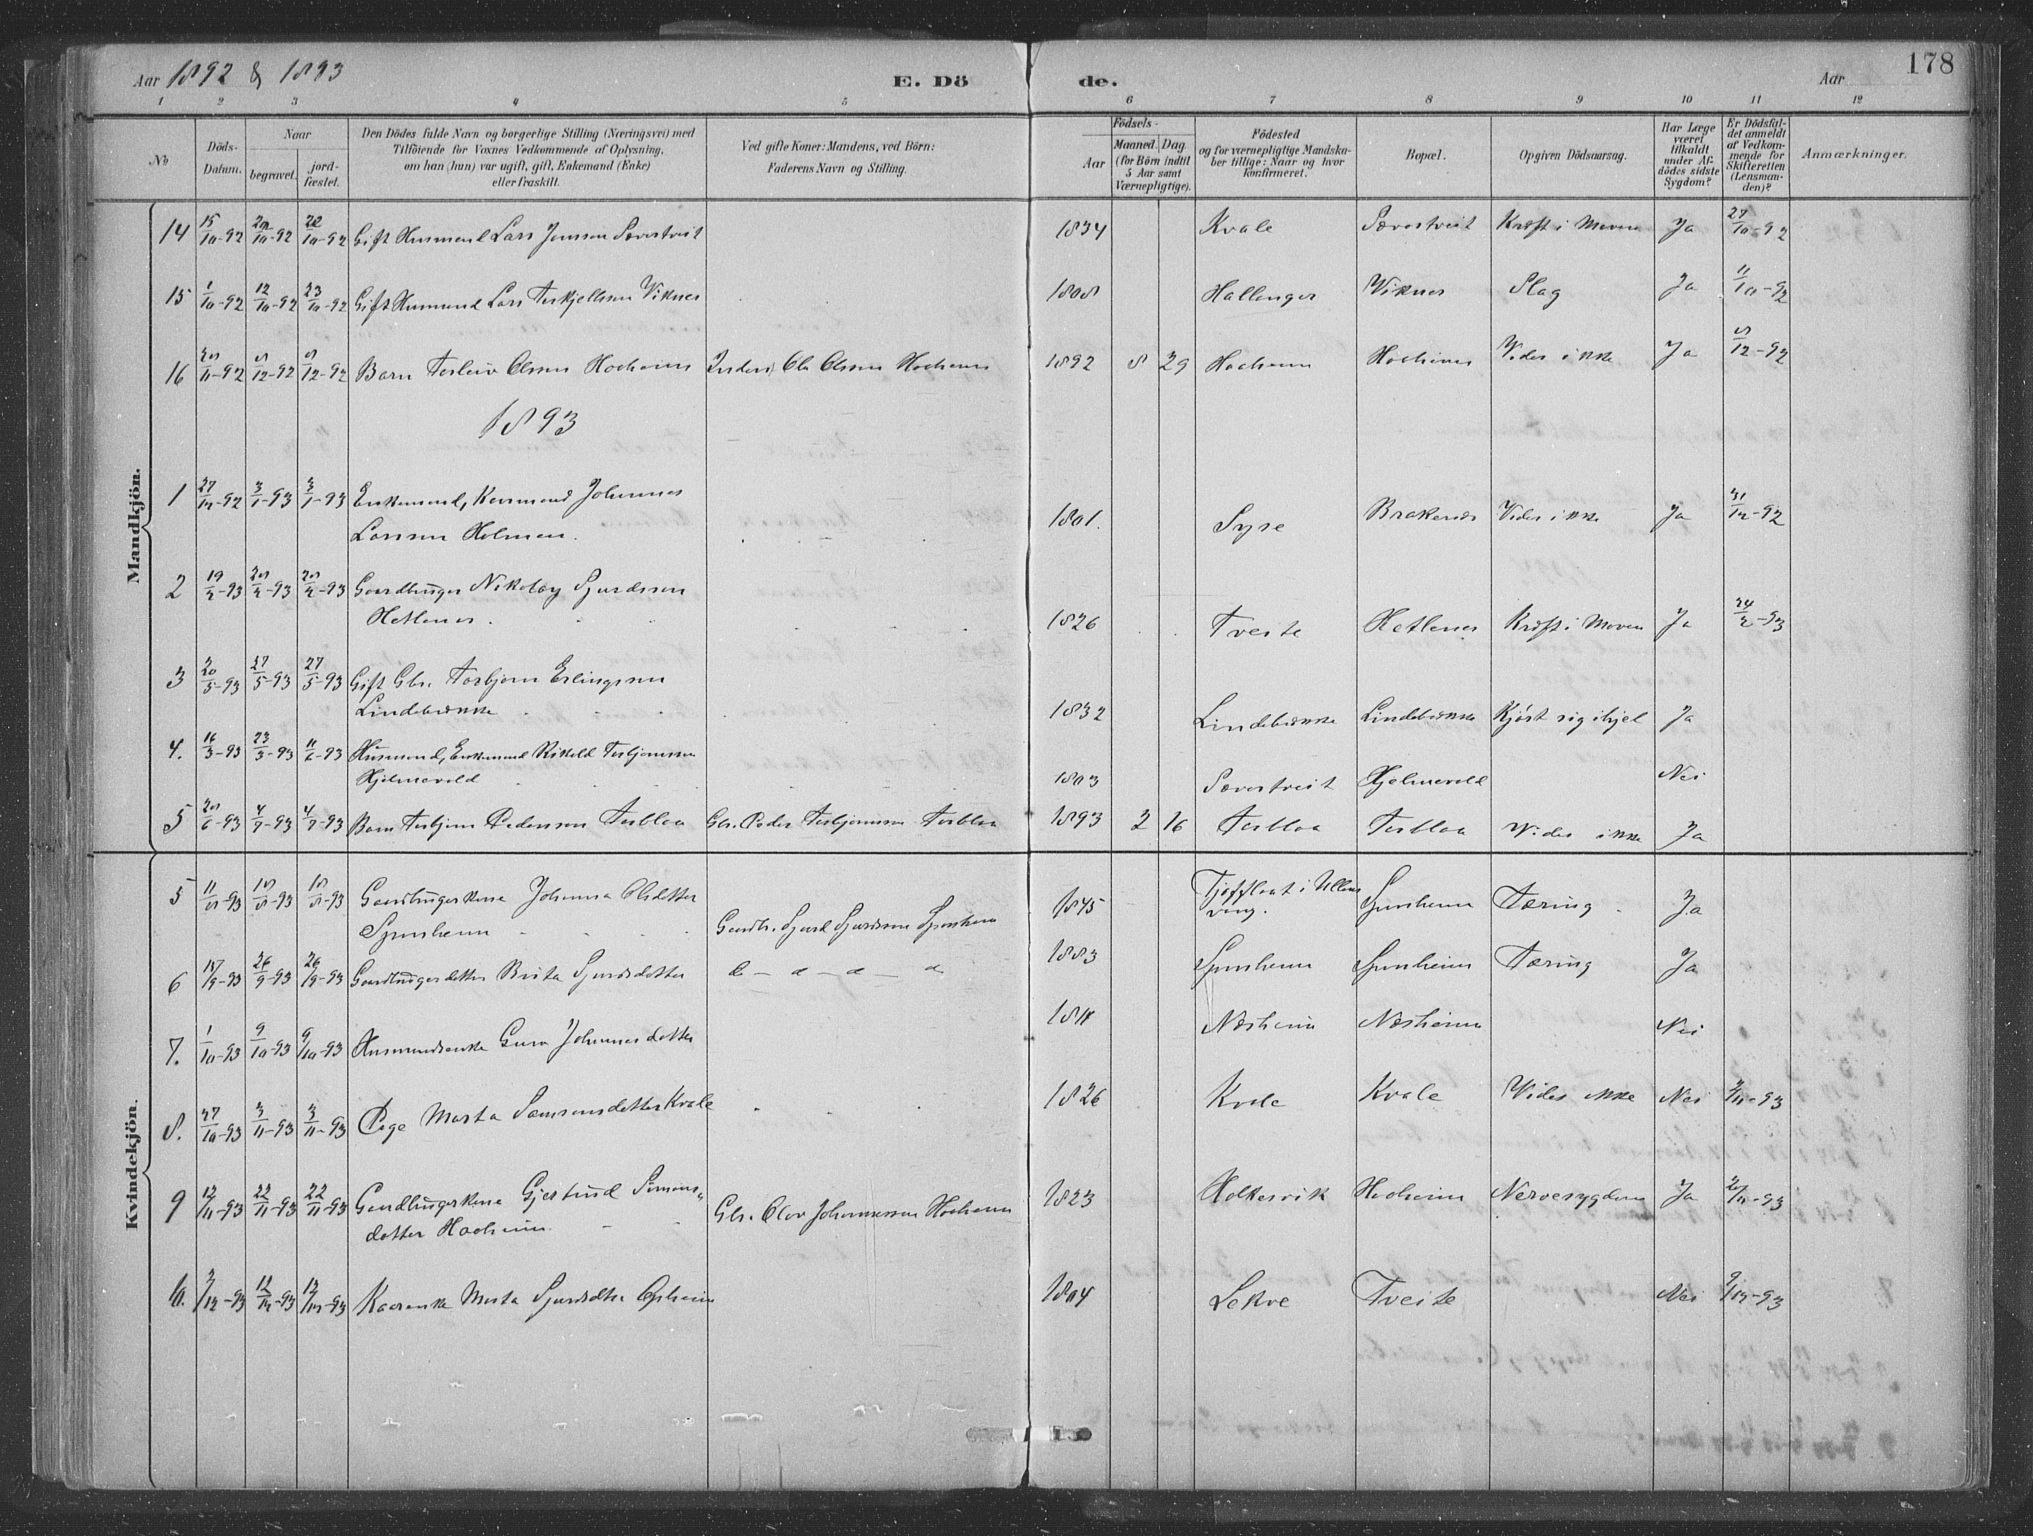 Aar 1892 & 1893
E. Dö
de.
Aar
178
1 2 3 4 5 6 7 8 9 10 11 12
No
Döds-Datum.
Naar
begravet.
jord-fæstet.
Den Dödes fulde Navn og borgerlige Stilling (Næringsvei) med
Tilföiende for Voxnes Vedkommende af Oplysning,
om han (hun) var ugift, gift, Enkemand (Enke)
eller fraskilt.
Ved gifte Koner: Mandens, ved Börn:
Faderens Navn og Stilling.
Födsels-
Aar
Maaned. Dag.
(for Börn indtil
5 Aar samt
Værnepligtige).
Födested
og for værnepligtige Mandska-
ber tillige: Naar og hvor
konfirmeret.
Bopæl.
Opgiven Dödsaarsag.
Har Læge
været
tilkaldt
under Af-
dödes sidste
Sygdom?
Er Dödsfal-
det anmeldt
af Vedkom-
mende for
Skifteretten
(Lensman-
den)?
Anmærkninger.
Mandkjön.
14 15/10-92 22/10-92 Gift Husmand Lars Jonsson Særstveit 1834 Kvale Særstveit Kræft i Maven Ja 27/10-92
15 1/10-92 12/10-92 23/10-92 Gift Husmand Lars Torkjellsen Viknes 1808 Hallanger Viknes Slag Ja 11/10-92
16 8/12-92 8/12-92 Barn Torleiv Olsen Hochheim Ola Olsen 1892 8 29 Vides ikke Ja 8/12-92
1893
1 27/12-92 3/1-93 3/1-93 Enkemand, Johannes
Larsson Holmen. 1801. Syse Vides ikke Ja 31/12-92
2 19/2-93 28/2-93 28/2-93 Gaardbruger Nikolay Sjurdsson
Hetlenes. 1826 Tveite Hetlenes Kræft i Maven Ja 24/2-93
3 20/5-93 27/5-93 27/5-93 Gift Gbr. Torbjørn Erlingsson
Lindebrække 1832 Lindebrække Lindebrække Kjøst sig ihjel Ja
4. 16/3-93 23/3-93 11/6-93 Husmand, Enkemand Torbjørnsson
Hjelmevold 1803 Særstveit Hjelmevold Nei
5 28/6-93 4/9-93 4/9-93 Barn Torbjørn Pederssen Torbloa Gbr. Peder Torbjørnsson Torbloa 1893 2 16 Torbloa Torbloa Vides ikke Ja
Kvindekjön.
5 11/8-93 18/8-93 18/8-93 Gaardbrugerkone Johanna Olsdatter
Sponheim Gaardbr. Sjurd Sjurdsson Sponheim 1845 Tjoflaat i Ullens
vang. Sponheim Tæring Ja
6 26/9-93 26/9-93 Gaardbrugerdatter Brita Sjursdatter 1883 Sponheim Sponheim Tæring Ja
7. 1/10-93 9/10-93 9/10-93 Husmandsenke Guro Johannesdatter Næsheim Næsheim Nei
8. 27/10-93 3/11-93 3/11-93 Pige Marta Samsonsdatter Kvale 1826 Kvale Kvale Vides ikke Nei 3/11-93
9 12/11-93 22/11-93 22/11-93 Gaardbrugerkone Gjertrud Simons-
datter Gbr. Olav Johannesson 1823 Holkesvik Nervesygdom Ja
10. 12/12-93 12/12-93 Marta Sjursdtr. Opheim 1804 Lekve Tveite Nei 9/12-93